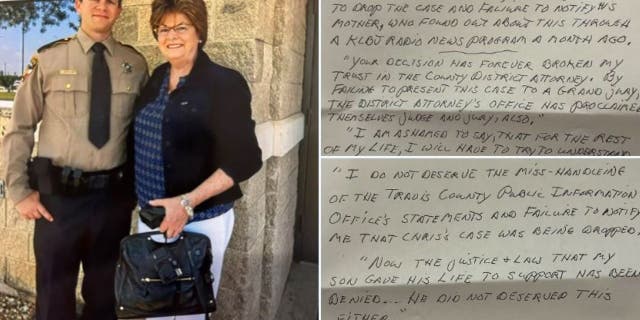 TO DROP THE CASE AND FAILURE TO NOTIFY HIS
MOTHER, WHO FOUND OUT ABOUT THIS THROUGH
A KLBJ RADIO NEWS PROGRAM A MONTH AGO.
"YOUR DECISION HAS FOREVER BROKEN MY
TRUST IN THE COUNTY DISTRICT ATTORNEY. BY
FAILING TO PRESENT THIS CASE TO A GRAND JURY,
THE DISTRICT ATTORNEY'S OFFICE HAS PROCLAIMED
THEMSELVES JUDGE AND JURY, ALSO,"
"I AM ASHAMED TO SAY, THAT FOR THE REST
OF MY LIFE, I WILL HAVE TO TRY TO UNDERSTAND
"I DO NOT DESERVE THE MISS-HANDLEING
OF THE TRAVIS COUNTY PUBLIC INFORMATION
OFFICE'S STATEMENTS AND FAILURE TO NOTIFY
ME THAT CHRIS'S CASE WAS BEING DROPPED.
"NOW THE JUSTICE + LAW THAT MY
SON GAVE HIS LIFE TO SUPPORT HAS BEEN
DENIED... HE DID NOT DESERVED THIS
EITHER."